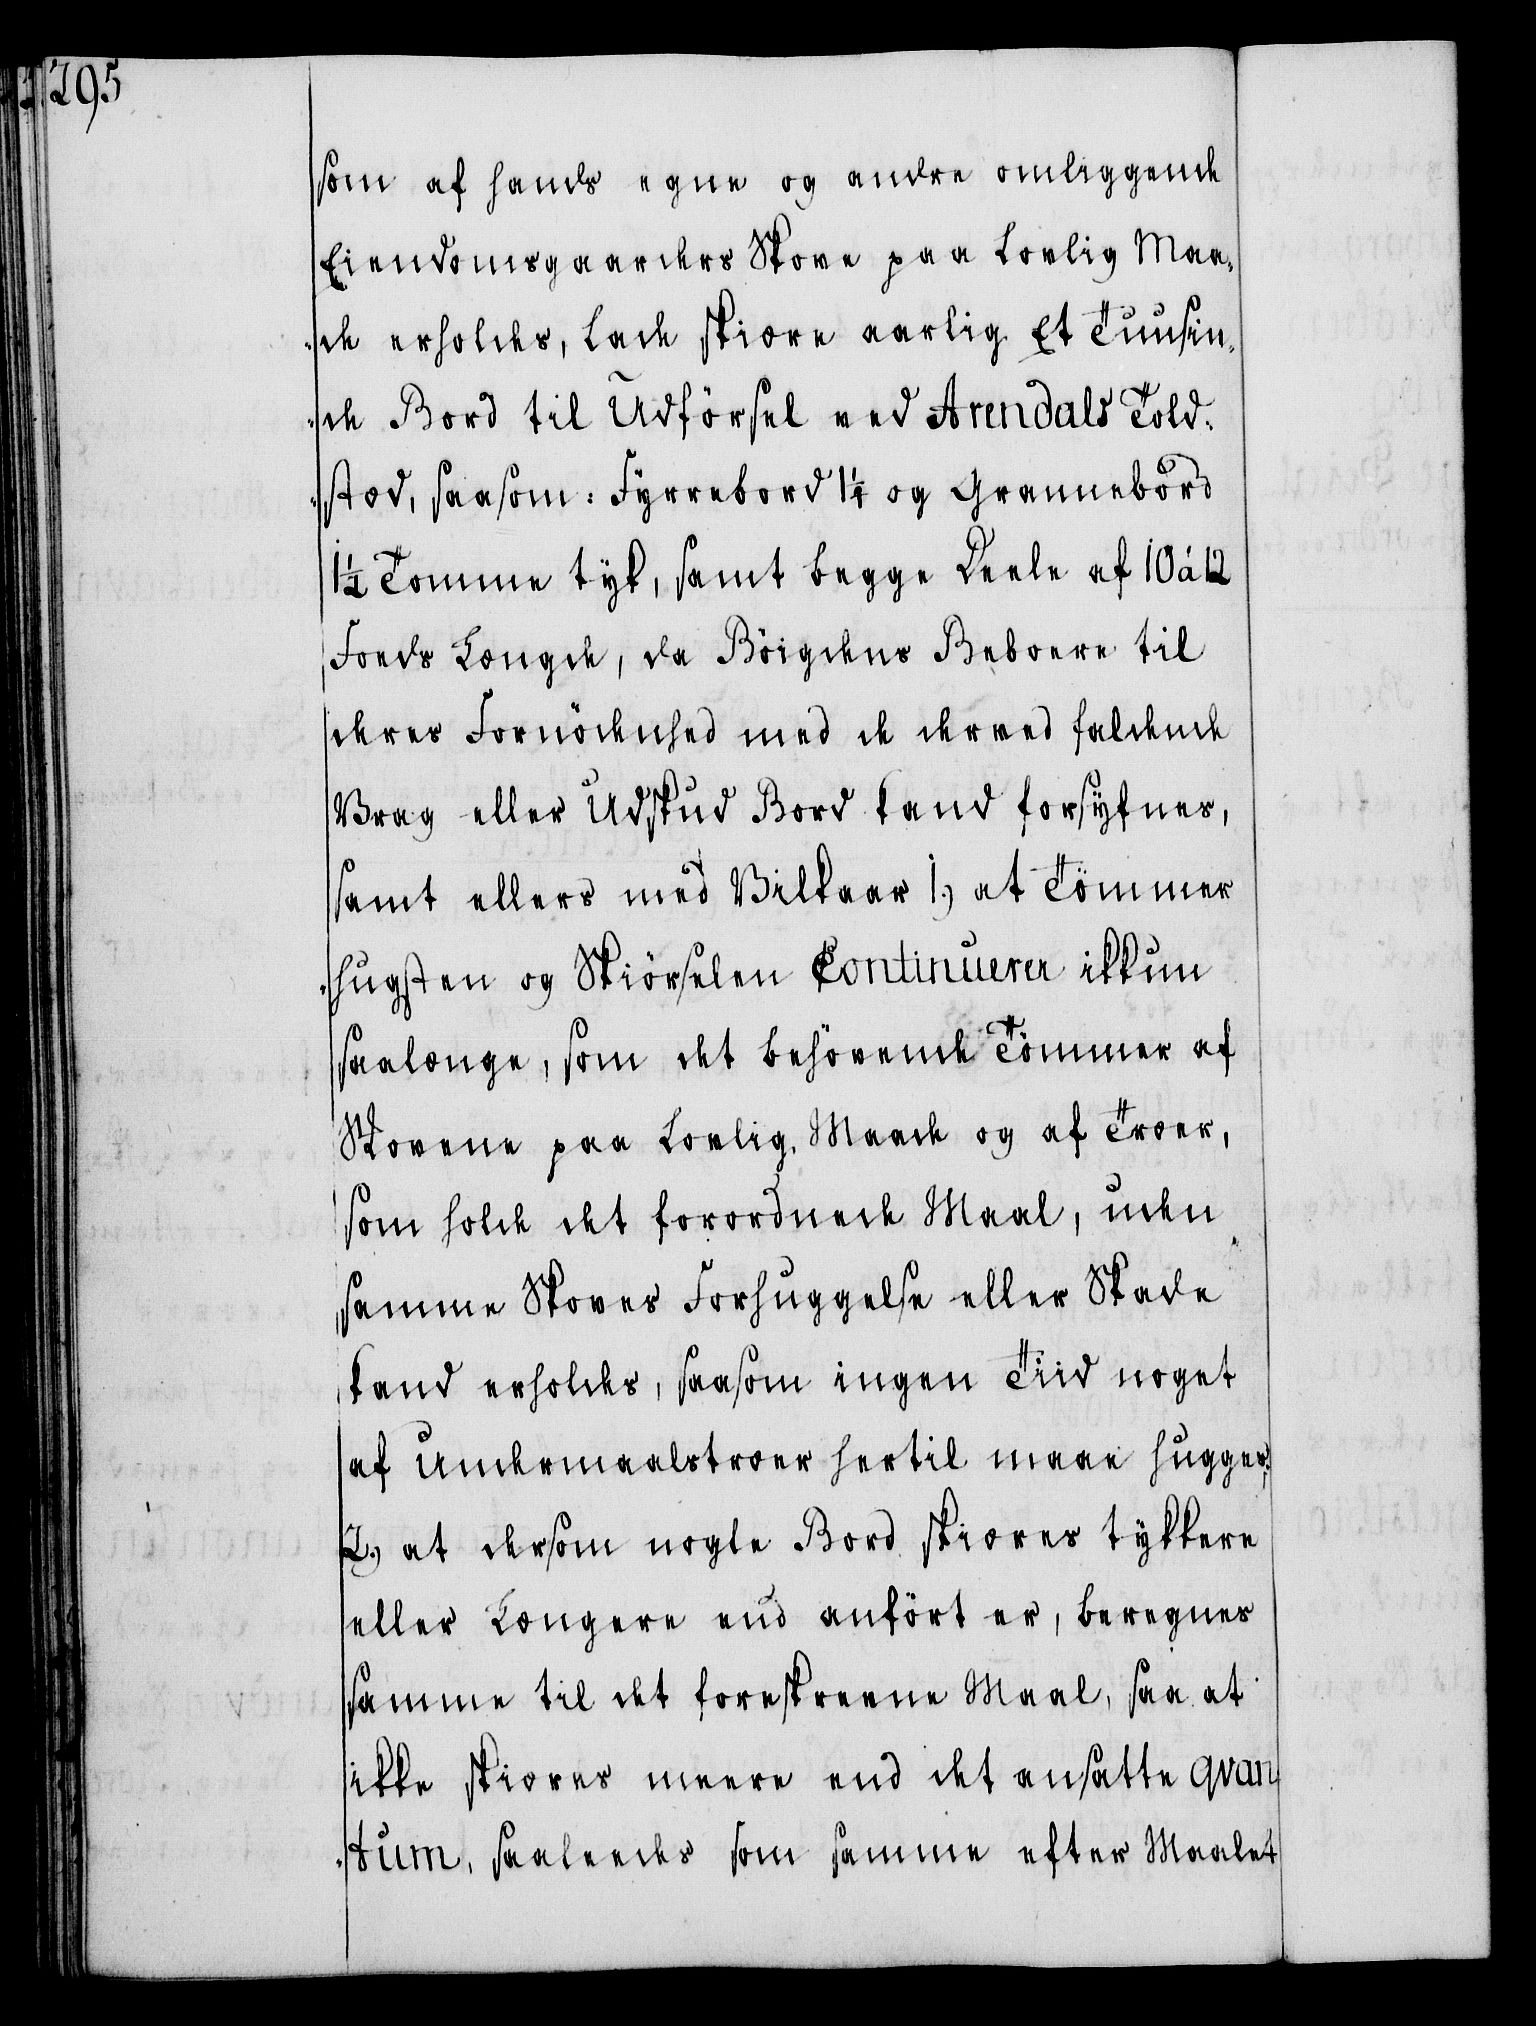 295
som af hands egne og andre omliggende
Eiendomsgaarders Skove paa Lovlig Maa-
-de erholdes, lade skiære aarlig Et Tuusin-
-de Bord til Udförsel ved Arendals Told-
-stæd, saasom: Fyrrebord 1¼ og Grannebord
1½ Tomme tyk, samt begge Deele af 10 á 12
Foeds Længde, da Böigdens Beboere til
deres Fornödenhed med de derved faldende
Vrag eller Udskud Bord kand forsyfnes,
samt ellers med Vilkaar 1.) at Tömmer
-hugsten og Skiörselen Continuerer ikkun
saalænge, som det behövende Tömmer af
Skovene paa Lovlig Maade og af Træer,
som holde det forordnede Maal, uden
samme Skoves Forhuggelse eller Skade
kand erholdes, saasom ingen Tiid noget
af Undermaalstræer hertil maae hugges;
2.) at dersom nogle Bord skiæres tykkere
eller Længere end anfört er, beregnes
samme til det foreskreevne Maal, saa at
ikke skiæres meere end det ansatte qvan
-tum, saaleedes som samme efter Maalet